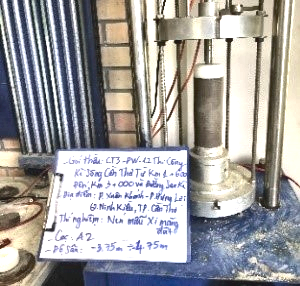 - Gói thầu: CT3-PW-1.2 Thi Công
Kè Sông Cần Thơ Từ Km 1 + 600
Đến Km 5 + 000 và đường sau kè
Địa điểm: P. Xuân Khánh - P. Hưng Lợi
Q. Ninh Kiều, TP. Cần Thơ
- Thí nghiệm: Nén mẫu xi măng
đất
- Cọc: A2
- Độ sâu: -3.75m ÷ -4.75m